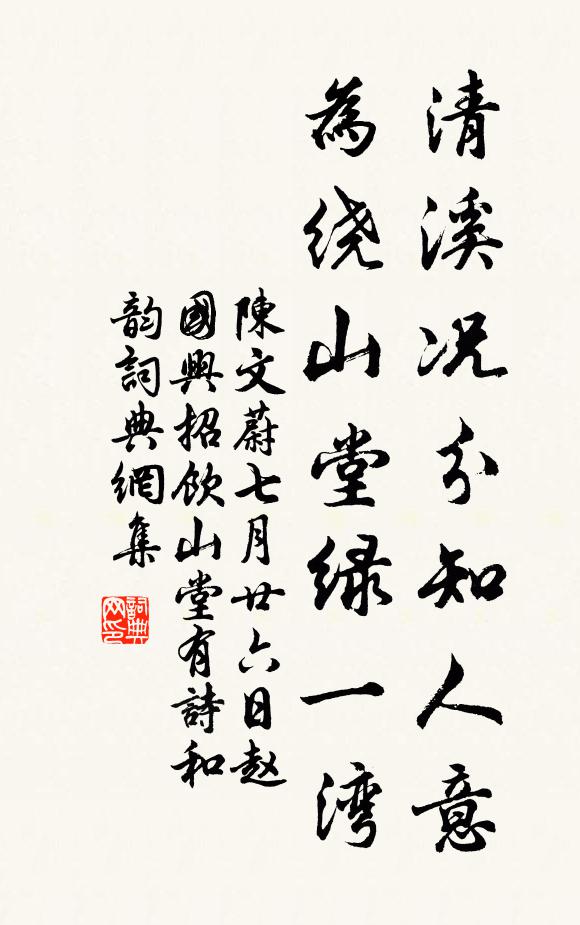 清溪况分知人意
為绕山堂緑一湾
陳文蔚七月廿六日赵
國興招飲山堂有詩和
韵詞典網集
詞典
网印